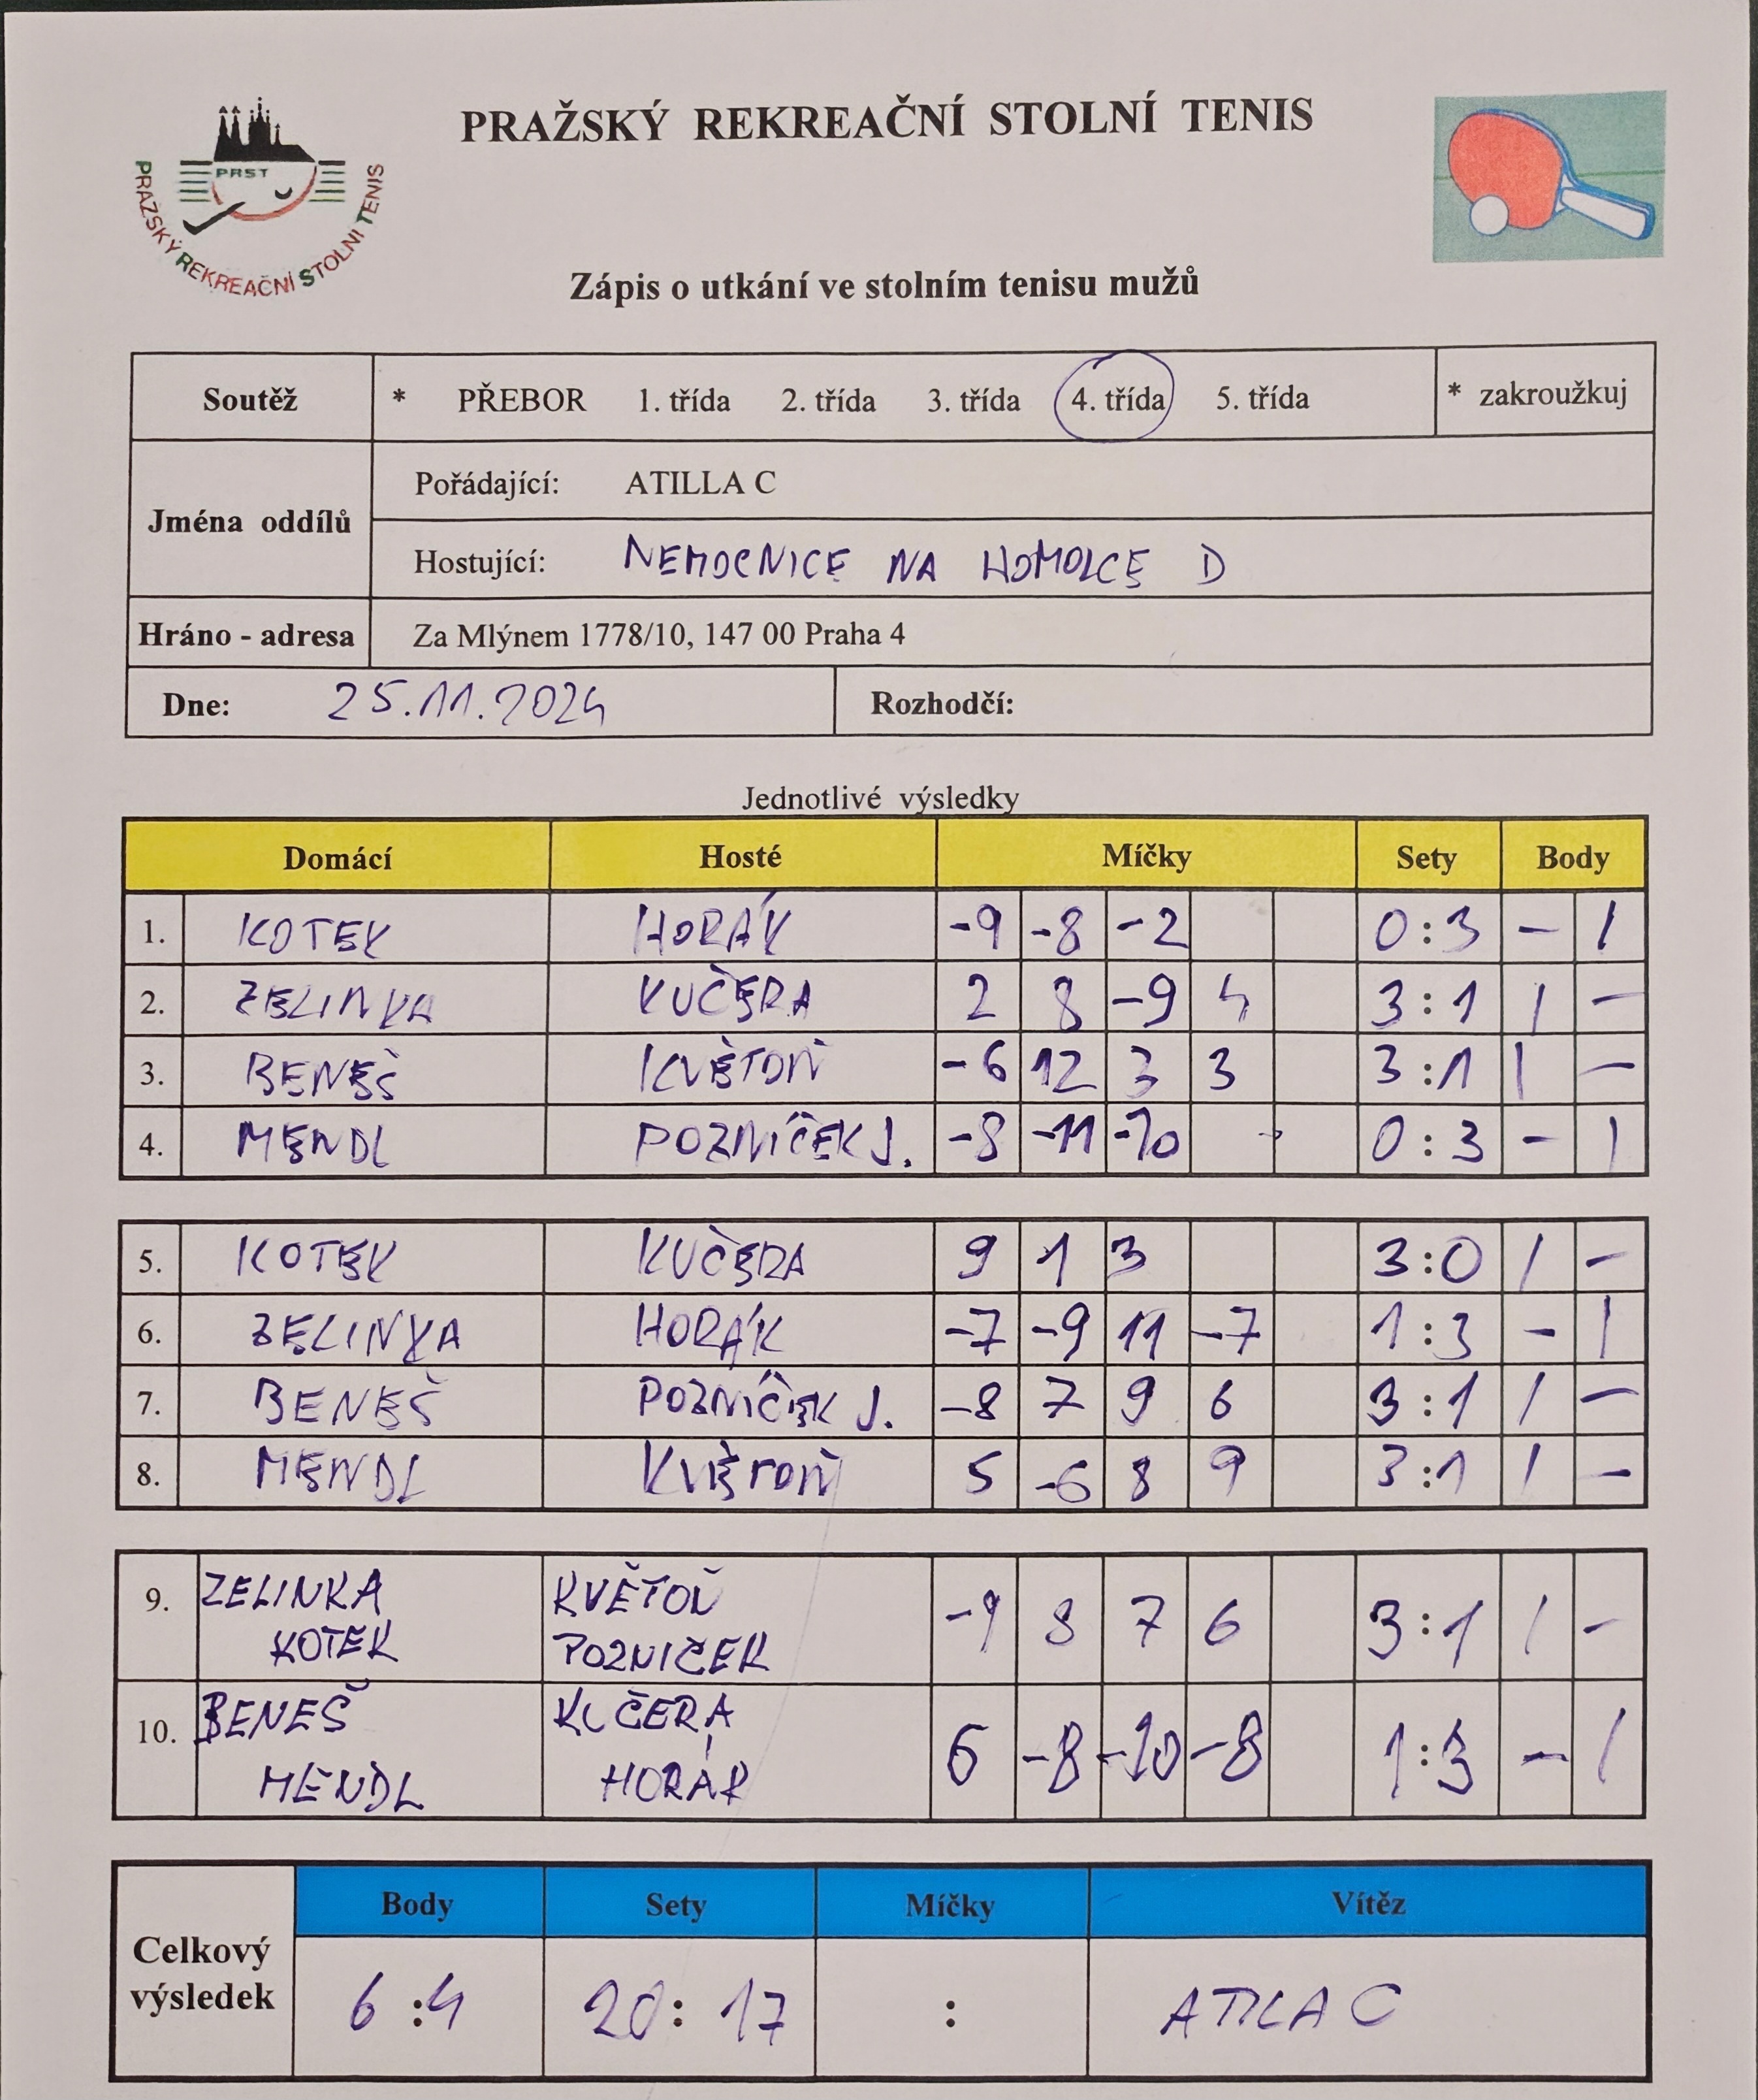 PRAŽSKÝ REKREAČNÍ STOLNÍ TENIS
PRST
PRAŽSKÝ REKREAČNÍ STOLNÍ TENIS
Zápis o utkání ve stolním tenisu mužů
Soutěž * PŘEBOR 1. třída 2. třída 3. třída 4. třída 5. třída * zakroužkuj
Jména oddílů
Pořádající: ATILLA C
Hostující: NEMOCNICE NA HOMOLCE D
Hráno - adresa Za Mlýnem 1778/10, 147 00 Praha 4
Dne: 25.11.2024 Rozhodčí:
Jednotlivé výsledky
Domácí Hosté Míčky Sety Body
1. KOTEK HORÁK -9 -8 -2 0:3 - 1
2. ZELINKA KUČERA 2 8 -9 4 3:1 1 -
3. BENEŠ KVĚTOŇ -6 12 3 3 3:1 1 -
4. MENDL POZNÍČEK J. -8 -11 -10 0:3 - 1
5. KOTEK KUČERA 9 1 3 3:0 1 -
6. ZELINKA HORÁK -7 -9 11 -7 1:3 - 1
7. BENEŠ POZNÍČEK J. -8 7 9 6 3:1 1 -
8. MENDL KVĚTOŇ 5 -6 8 9 3:1 1 -
9. ZELINKA KVĚTOŇ -9 8 7 6 3:1 1 -
KOTEK POZNIČEK
10. BENEŠ KUČERA 6 -8 -10 -8 1:3 - 1
MENDL HORÁK
Celkový výsledek
Body Sety Míčky Vítěz
6:4 20:17 : ATILA C